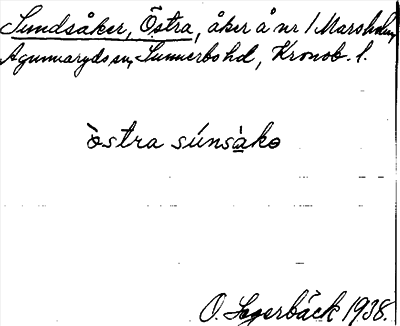 Sundsåker, Östra, åker å nr 1 Marsholm,
Agunnaryds sn, Sunnerbo hd, Kronob. l.
östra súnsàkə
O. Segerbäck 1938.